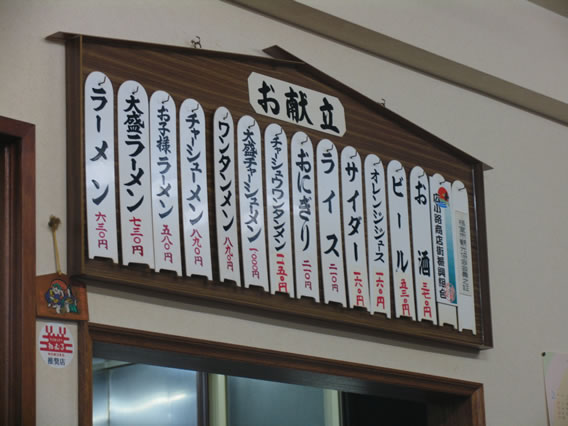 お献立
ラーメン
六三〇円
大盛ラーメン
七三〇円
お子様ラーメン
五八〇円
チャーシューメン
八九〇円
ワンタンメン
八九〇円
大盛チャーシューメン
一〇〇〇円
チャーシュウワンタンメン
一一五〇円
おにぎり
二一〇円
ライス
二一〇円
サイダー
一六〇円
オレンジジュース
一六〇円
ビール
五三〇円
お酒
三七〇円
広小路商店街振興組合